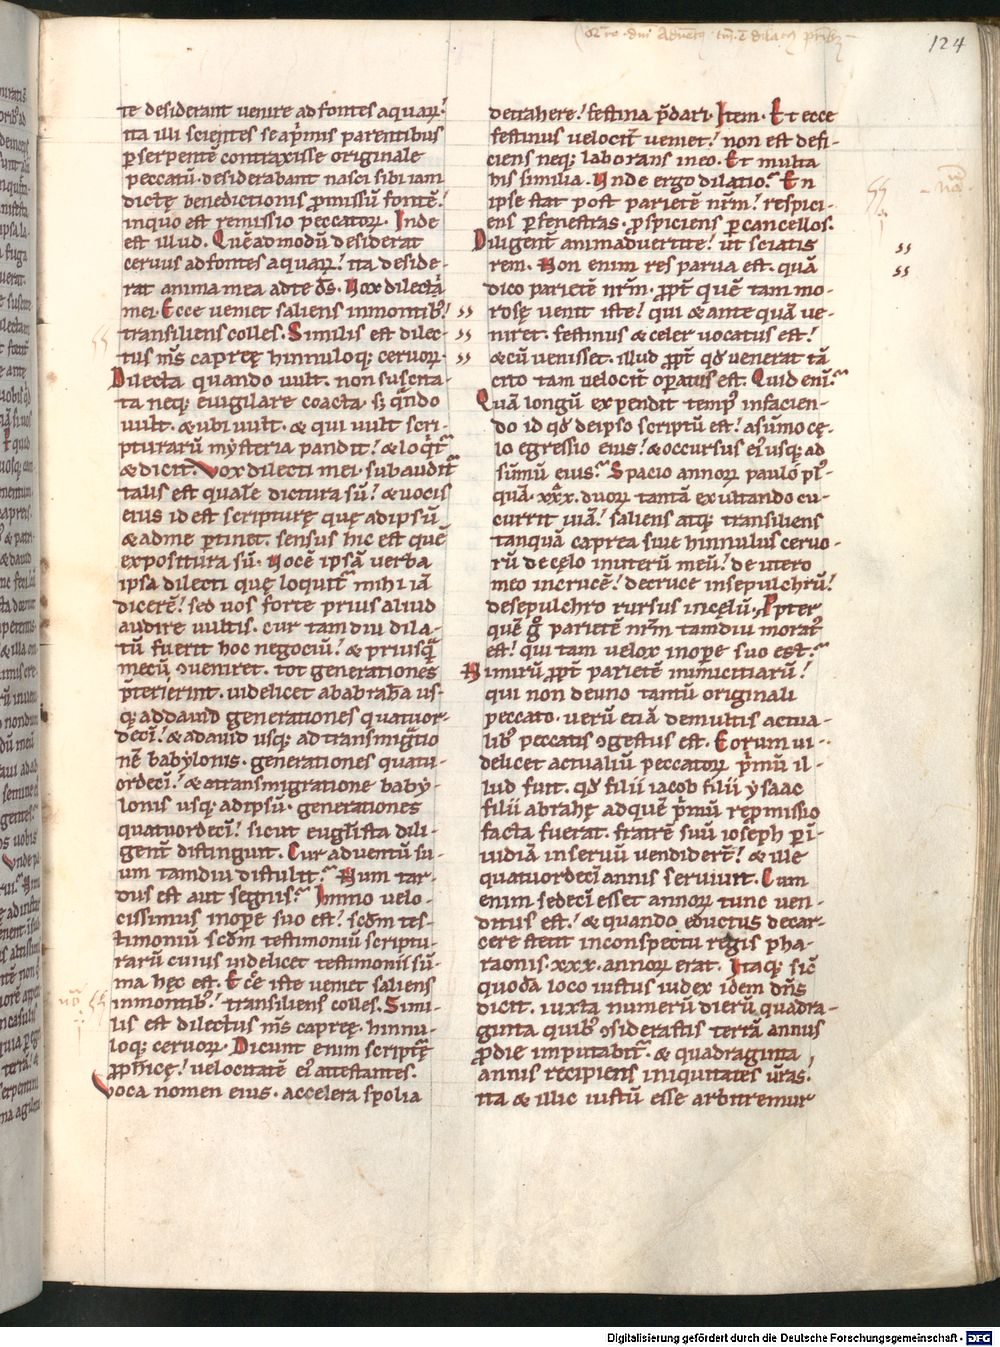 124
te desiderant venire ad fontes aquaꝝ.
ita illi scientes se a p̄mis parentibus
ꝑ serpentē contraxisse originale
peccatū. desiderabant nasci sibi iam
dictę benedictionis ꝓmissū fontē.
in quo est remissio peccatoꝝ. Inde
est illud. Quēadmodū desiderat
ceruus ad fontes aquaꝝ. ita deside-
rat anima mea ad te d̄s. Vox dilecti
mei. Ecce ueniet saliens in montib;
transiliens colles. Similis est dilec-
tus m̄s capreę hinnuloq; ceruoꝝ.
Dilecta quando uult. non suscita-
ta neq; euigilare coacta. s; qn̄do
uult. & ubi uult. & qui uult scri-
pturarū mysteria pandit. & loq̄t̄
& dicit. Vox dilecti mei. subaudit̄
talis est qualē dictura sū. & uocis
eius id est scripturę quę ad ipsū
& ad me ꝑtinet. sensus hic est quē
expositura sū. Vocē ipsā uerba
ipsa dilecti quę loquit̄ mihi iā
dicerē. sed uos forte prius aliud
audire uultis. cur tam diu dila-
tū fuerit hoc negociū. & priusq̄
mecū ɔueniret. tot generationes
p̄terierint. uidelicet ab abrahā us-
q; ad dauid generationes quatuor-
decī. & a dauid usq; ad transmigr̄atio
nē babylonis. generationes quatu-
ordecī. & a transmigratione baby-
lonis usq; ad ipsū. generationes
quatuordecī. sicut eugl̄ista dili-
gent̄ distinguit. Cur aduentū su-
um tamdiu distulit. Num tar-
dus est aut segnis. Immo uelo-
cissimus in opere suo est. scd̄m tes-
timoniū scd̄m testimoniū scriptu-
rarū cuius uidelicet testimonii sū-
ma hęc est. Ecc̄e iste ueniet saliens
in montib; transiliens colles. Simi-
lis est dilectus m̄s capreę. hinnu-
loq; ceruoꝝ. Dicunt enim scriptę
ꝓpheticę. uelocitatē ei; attestantes.
Voca nomen eius. accelera spolia
detrahere. festina p̄dari. Item. Et ecce
festinus uelocit̄ ueniet. non est defi-
ciens neq; laborans in eo. Et multa
his similia. Vnde ergo dilatio. En
ipse stat post parietē nr̄m. respici-
ens ꝑ fenestras. ꝓspiciens ꝑ cancellos.
Diligent̄ animaduertite. ut sciatis
rem. Non enim res parua est. quā
dico parietē nr̄m. ꝓpt̄ quē tam mo-
rosę uenit iste. qui & ante quā ue-
niret. festinus & celer uocatus est.
& cū uenisset. illud ꝓpt̄ qd̄ uenerat tā
cito tam uelocit̄ oꝑatus est. Quid enī.
Quā longū expendit temp; in facien-
do id qd̄ de ipso scriptū est. a sūmo cę-
lo egressio eius. & occursus ei; usq; ad
sūmū eius. Spacio annoꝝ paulo pl;
quā. xxx. duoꝝ tantā exultando cu-
currit uiā. saliens atq; transiliens
tanquā caprea siue hinnulus ceruo-
rū. de cęlo in uterū meū. de utero
meo in crucē. de cruce in sepulchrū.
de sepulchro rursus in cęlū. Ꝓpter
quē g̊ parietē nr̄m tamdiu morat;
est. qui tam uelox in ope suo est.
Nimirū ꝓpt̄ parietē inimicitiarū.
qui non de uno tantū originali
peccato. uerū etiā de multis actua-
lib; peccatis ɔgestus est. Eorum ui-
delicet actualiū peccatoꝝ p̄mū il-
lud fuit. qd̄ filii iacob filii ysaac
filii abrahę ad quē p̄mū repmissio
facta fuerat. fratrē suū ioseph ꝑ ī-
uidiā in seruū uendider̄t. & ille
quatuordecī annis seruiuit. Cum
enim sedecī esset annoꝝ tunc uen-
ditus est. & quando eductus de car-
cere stetit in conspectu regis pha-
raonis. xxx. annoꝝ erat. Itaq; sic̄
quodā loco iustus iudex idem dn̄s
dicit. iuxta numerū dierū quadra-
ginta quib; ɔsiderastis terrā annus
ꝓ die imputabit̄. & quadraginta
annis recipiens iniquitates ur̄as.
ita & illic iustū esse arbitremur
Digitalisierung gefördert durch die Deutsche Forschungsgemeinschaft - DFG